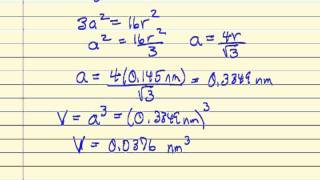 3a² = 16r²
a² = 16r²/3   a = 4r/√3
a = 4(0.145 nm)/√3 = 0.3349 nm
V = a³ = (0.3349 nm)³
V = 0.0376 nm³